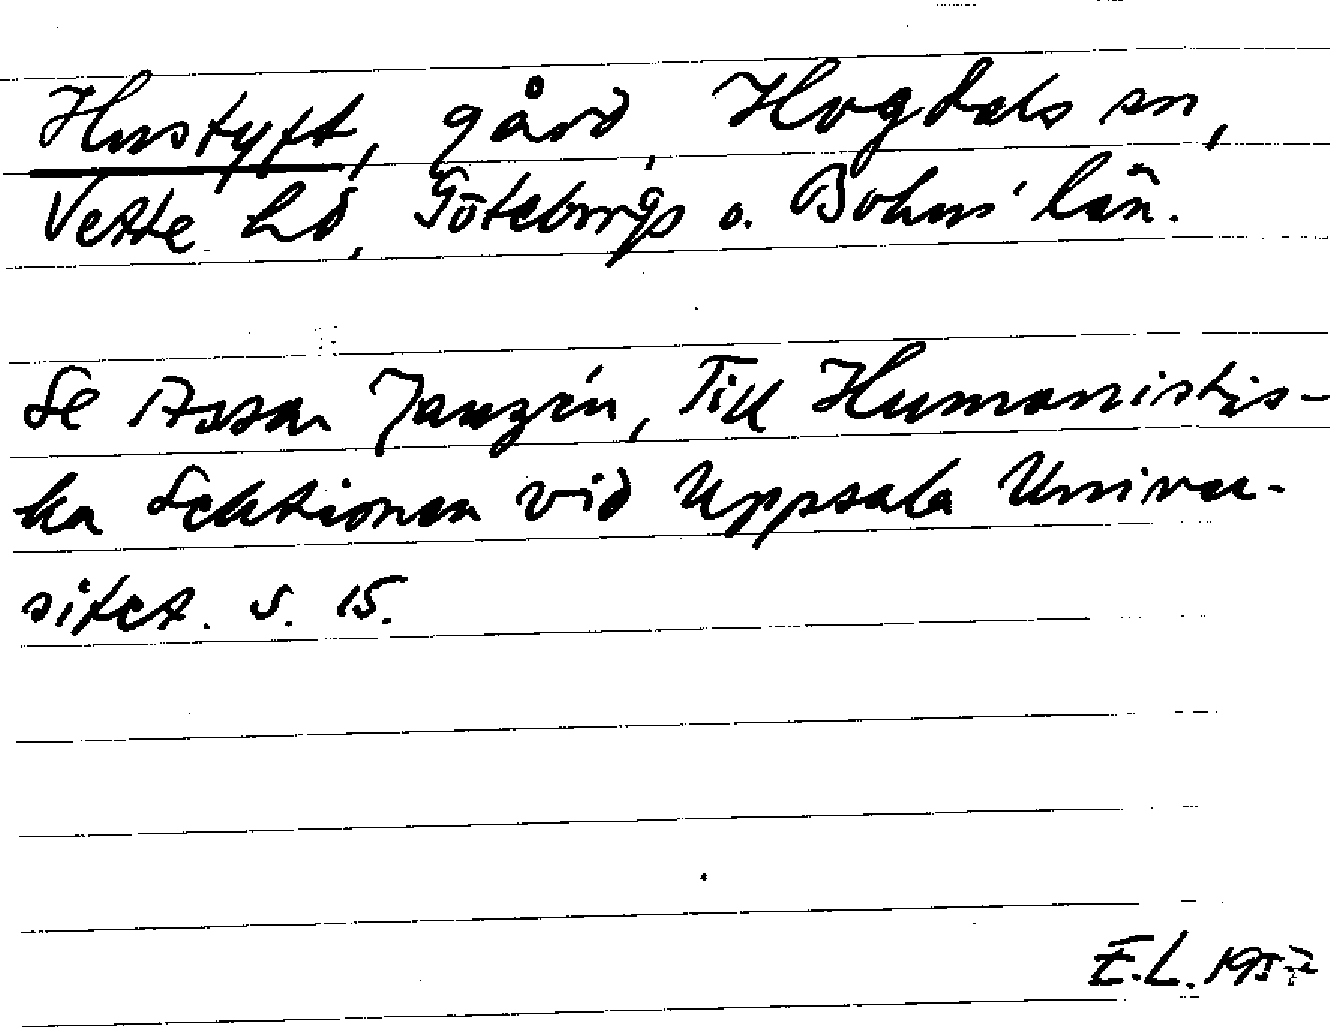 Hustyft, gård, Hogdals sn,
Vette hd, Göteborgs o. Bohus' län.
Se Assar Janzén, Till Humanistis-
ka Sektionen vid Uppsala Univer-
sitet. s. 15.
E.L. 1957